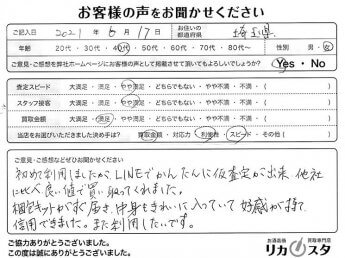 お客様の声をお聞かせください
ご記入日 2021年 6月 17日 お住いの都道府県 埼玉県
年齢 20代・30代・40代・50代・60代・70代・80代〜 性別 男・女
ご意見・ご感想を弊社ホームページにお客様の声として掲載させて頂いてもよろしいでしょうか? Yes・No
査定スピード 大満足・満足・やや満足・どちらでもない・やや不満・不満( )
スタッフ接客 大満足・満足・やや満足・どちらでもない・やや不満・不満( )
買取金額 大満足・満足・やや満足・どちらでもない・やや不満・不満( )
当店をお選びいただきました決め手は? 買取金額・対応力・利便性・スピード・その他( )
ご意見・ご感想などぜひお聞かせください
初めて利用しましたが、LINEでかんたんに仮査定が出来、他社
に比べ良い値で買い取ってくれました。
梱包キットがすぐ届き、中身もきれいに入っていて好感が持て、
信用できました。また利用したいです。
ご協力ありがとうございました。
この度は誠にありがとうございました。
お酒高価 買取専門店
リカスタ